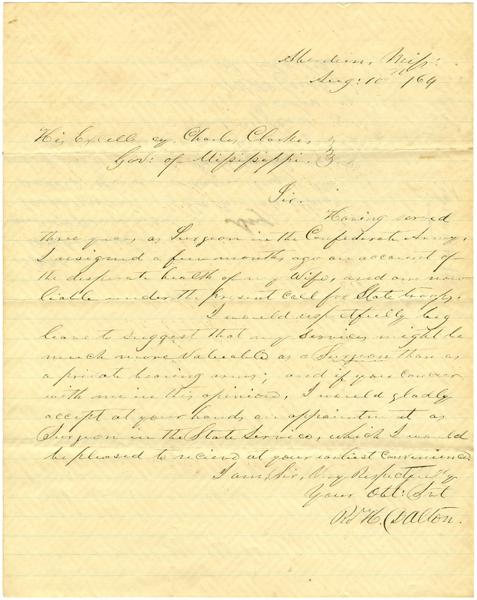 Aberdeen, Miss:
Aug: 10th /64
His Excellency, Charles Clarke,
Gov: of Mississippi.
Sir.
Having served
three years, as Surgeon in the Confederate Army,
I resigned a few months ago on account of
the desperate health of my Wife, and am now
liable under the present call for State troops.
I would respectfully beg
leave to suggest that my services might be
much more valuable as a Surgeon than as
a private bearing arms; and if you concur
with me in this opinion, I would gladly
accept at your hands an appointment as
Surgeon in the State Service, which I would
be pleased to recieve at your earliest convenience
I am, Sir, Very Respectfully
Your Obt: Svt
R. H. Dalton.